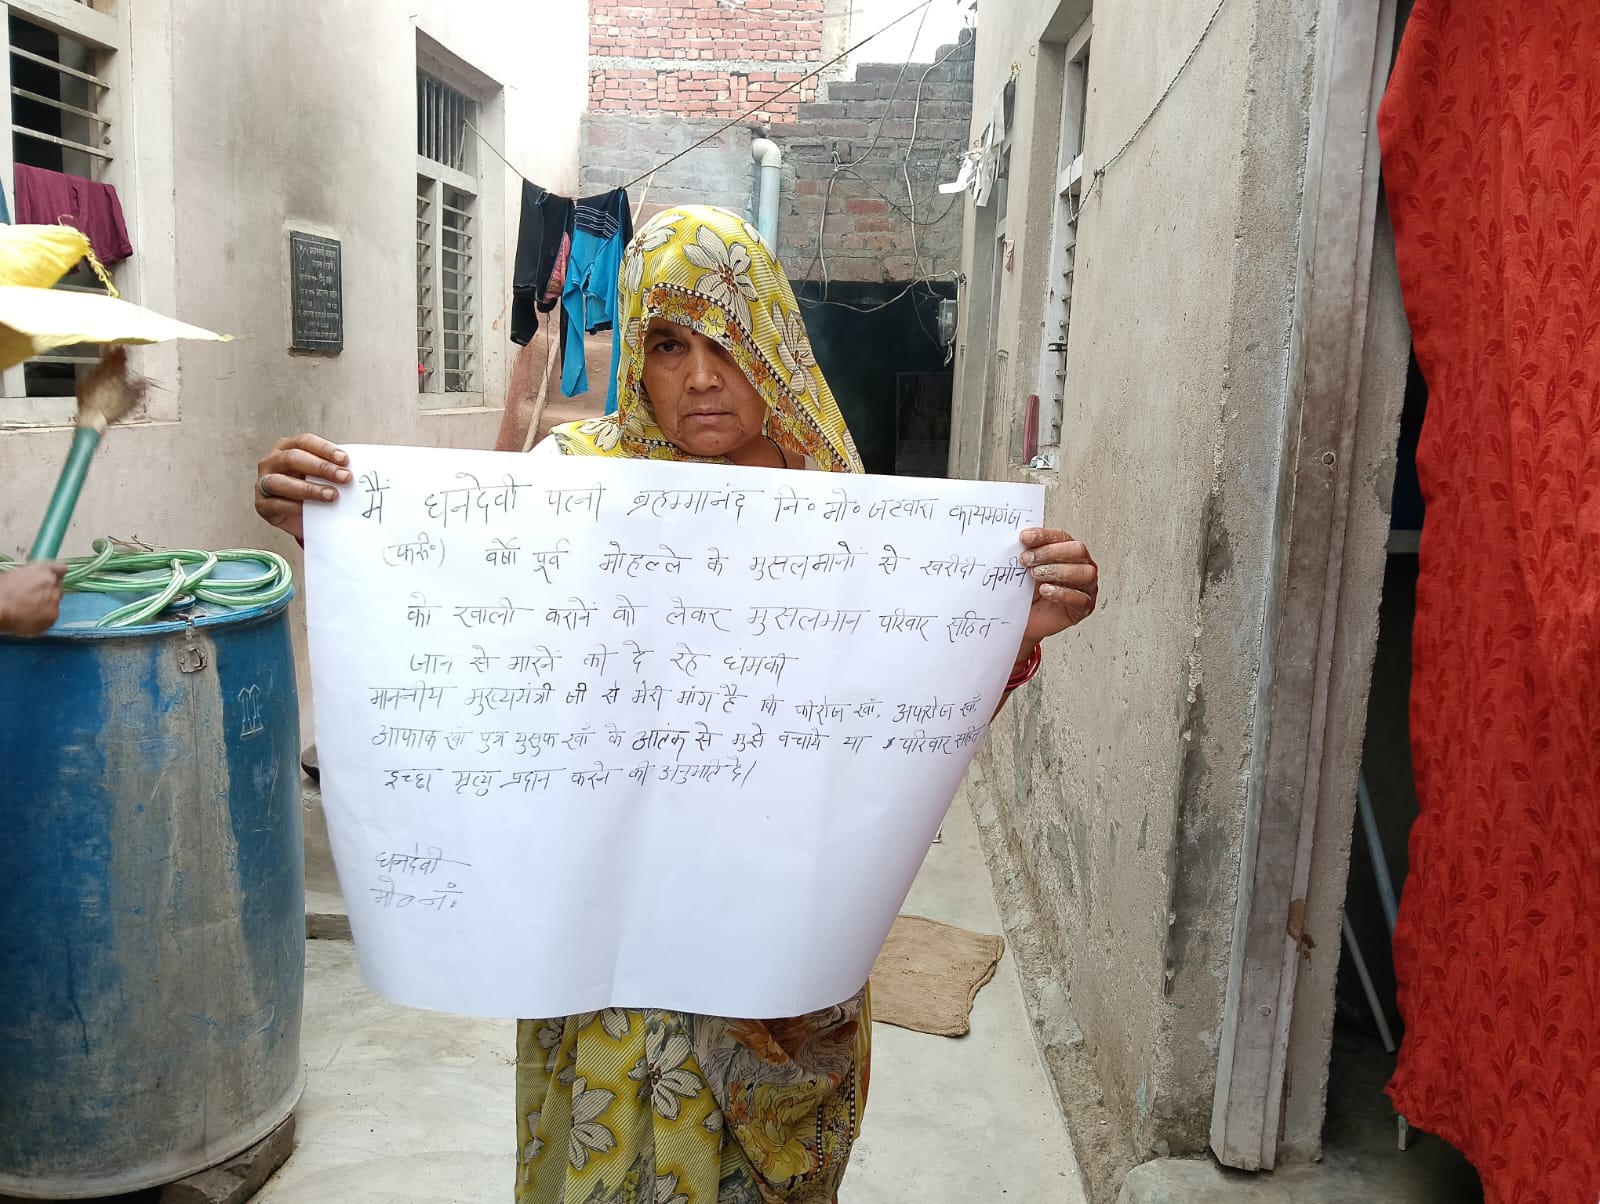 मैं धनदेवी पत्नी ब्रहम्मानंद नि० मो० जटवारा कायमगंज-
(फर्रू०) बर्षो पूर्व मोहल्ले के मुसलमानों से खरीदी जमीन
को खाली करानें को लेकर मुसलमान परिवार सहित-
जान से मारनें की दे रहे धंमकी
माननीय मुख्यमंत्री जी से मेरी मांग है कि फीरोज खाँ, अफरोज खाँ,
आफाक खाँ पुत्र युसुफ खाँ के आतंक से मुझे बचाये या परिवार सहित
इच्छा मृत्यु प्रदान करने की अनुमति दे।
धनदेवी
मो० नं०